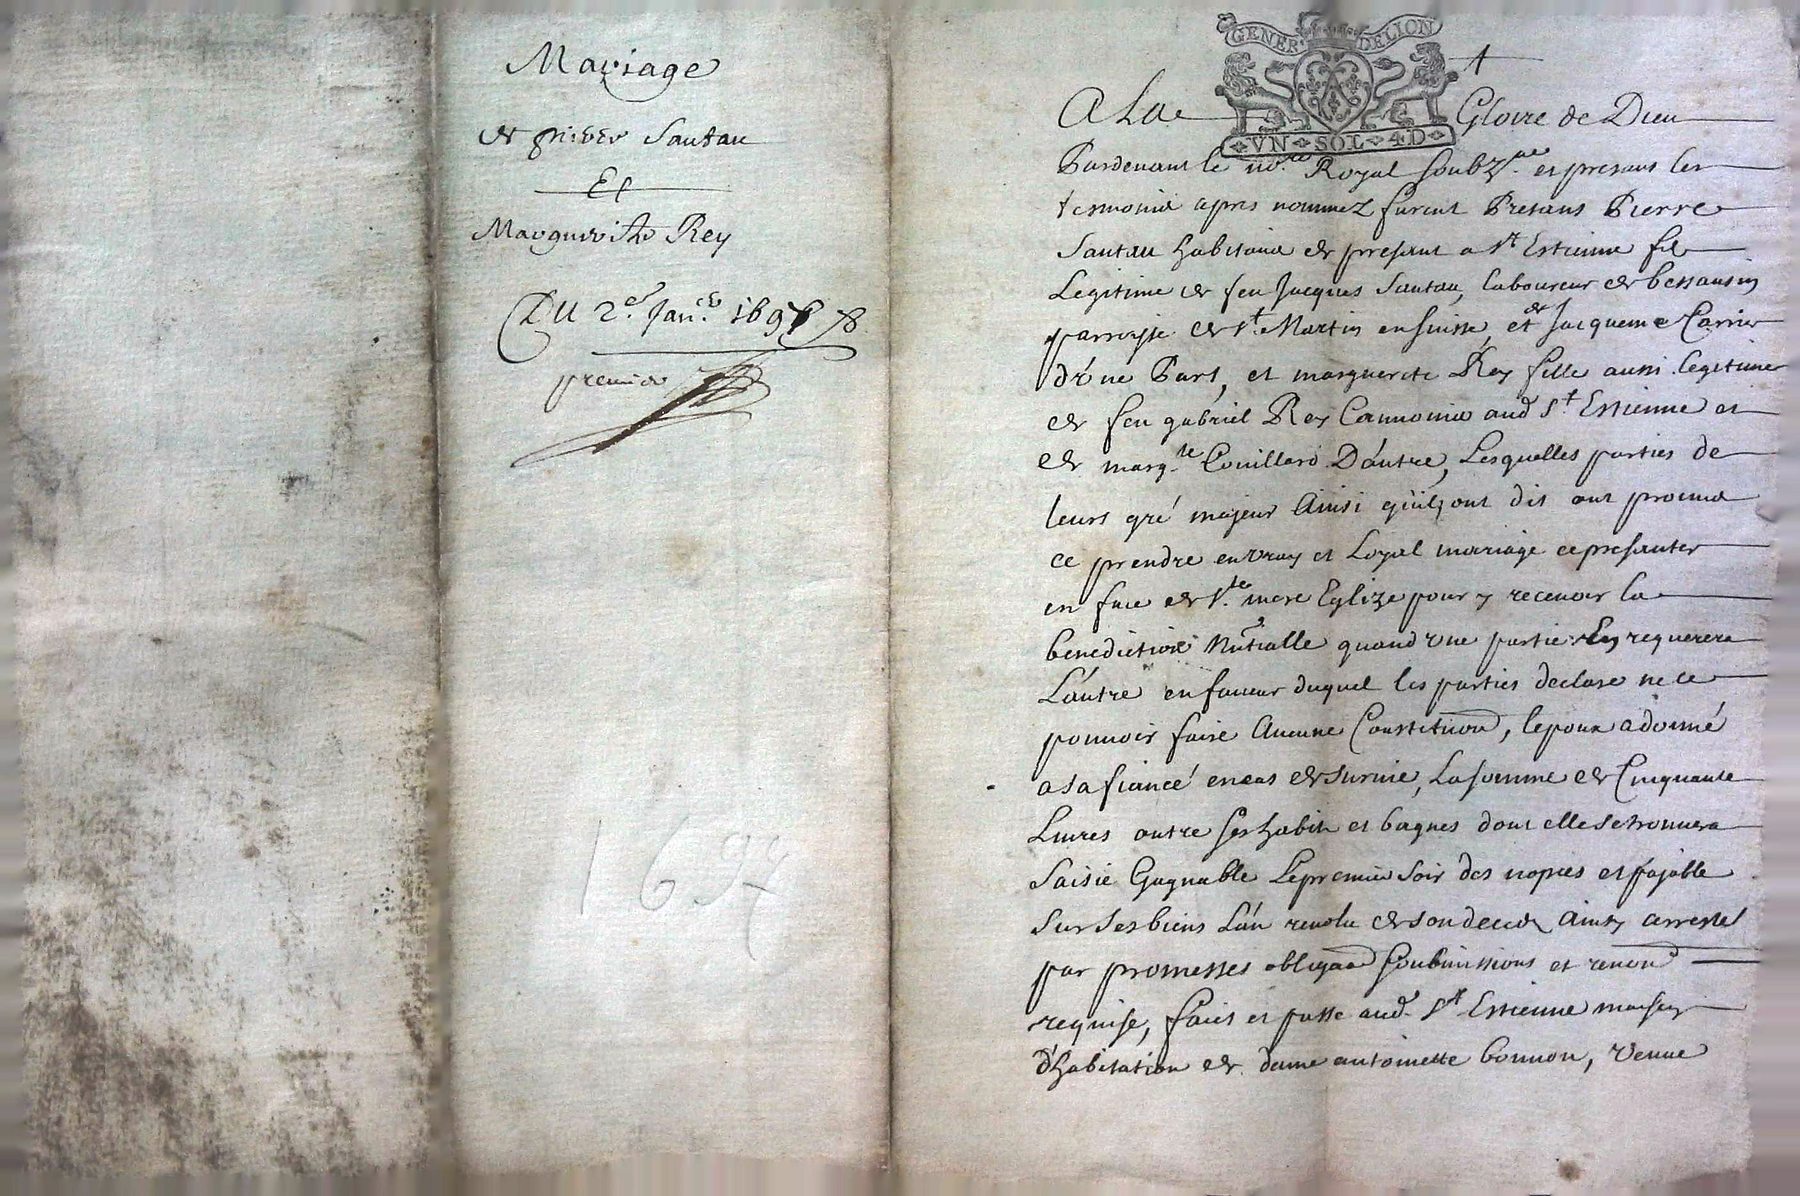 Mariage
de pierre Sautau
Et
Marguerite Rey
Du 2e. Janer. 1697
premier
1697
GENER DELION
VN SOL 4D
A La Gloire de Dieu
Pardevant le nore. Royal soubzne. et presans les
tesmoins apres nommez furent Presans Pierre
Sautau habitand de presant a St Estienne fils
Legitime de feu Jacques Sautau, laboureur de bessausin
parroysse de St. Martin et de Jacqueme Carrier
d'une Part, et marguerite Rey fille aussi legitime
de feu gabriel Rey aud St. Estienne et
de margte Couillard D'autre, Lesquelles parties de
leurs gré majeur Ainsi qu'ilz ont dit ont promis
ce prendre en vray et Loyal mariage ce presanter
en face de Ste. mere Eglize pour y recevoir la
benediction Nuptialle quand vne partie En requerera
L'autre en faueur duquel les parties declare ne ce
pouuoir faire Aucune Constitution, lepoux a donné
a sa fiancé en cas de survie, La somme de Cinquante
Liures outre ses habits et bagnes dont elle se trouuera
Saisie Gagnable Le premier soir des nopces et payable
sur ses biens L'an revolu de son deces Ainsy arresté
par promesses obligaon soubmissions et renon
requise, faict et passé aud. St Estienne maison
d'habitation de dame antoinette bonnon, veuue